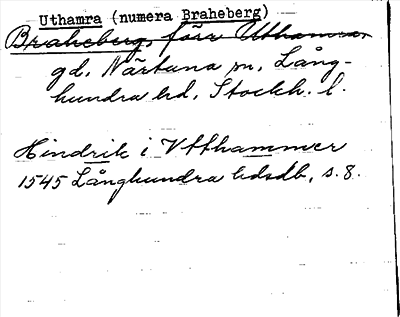 Uthamra (numera Braheberg)
Braheberg, förr Uthamra.
gd, Närtuna sn, Lång-
hundra hd, Stockh. l.
Hindrik i Vtthammer
1545 Långhundra hdsdb, s. 8.